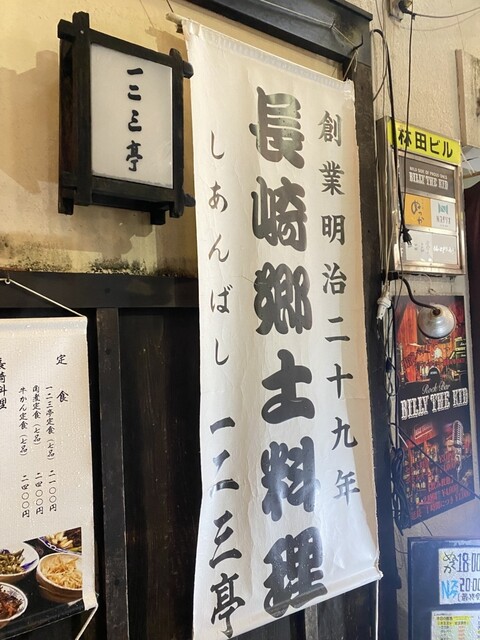 一二三亭
創業明治二十九年
長崎郷土料理
しあんばし 一二三亭
定食
一二三亭定食(七品) 二一〇〇円
角煮定食(七品) 二四〇〇円
牛かん定食(七品) 二四〇〇円
長崎料理
林田ビル
BILLY THE KID
Rock Bar
BILLY THE KID
18:00
20:00